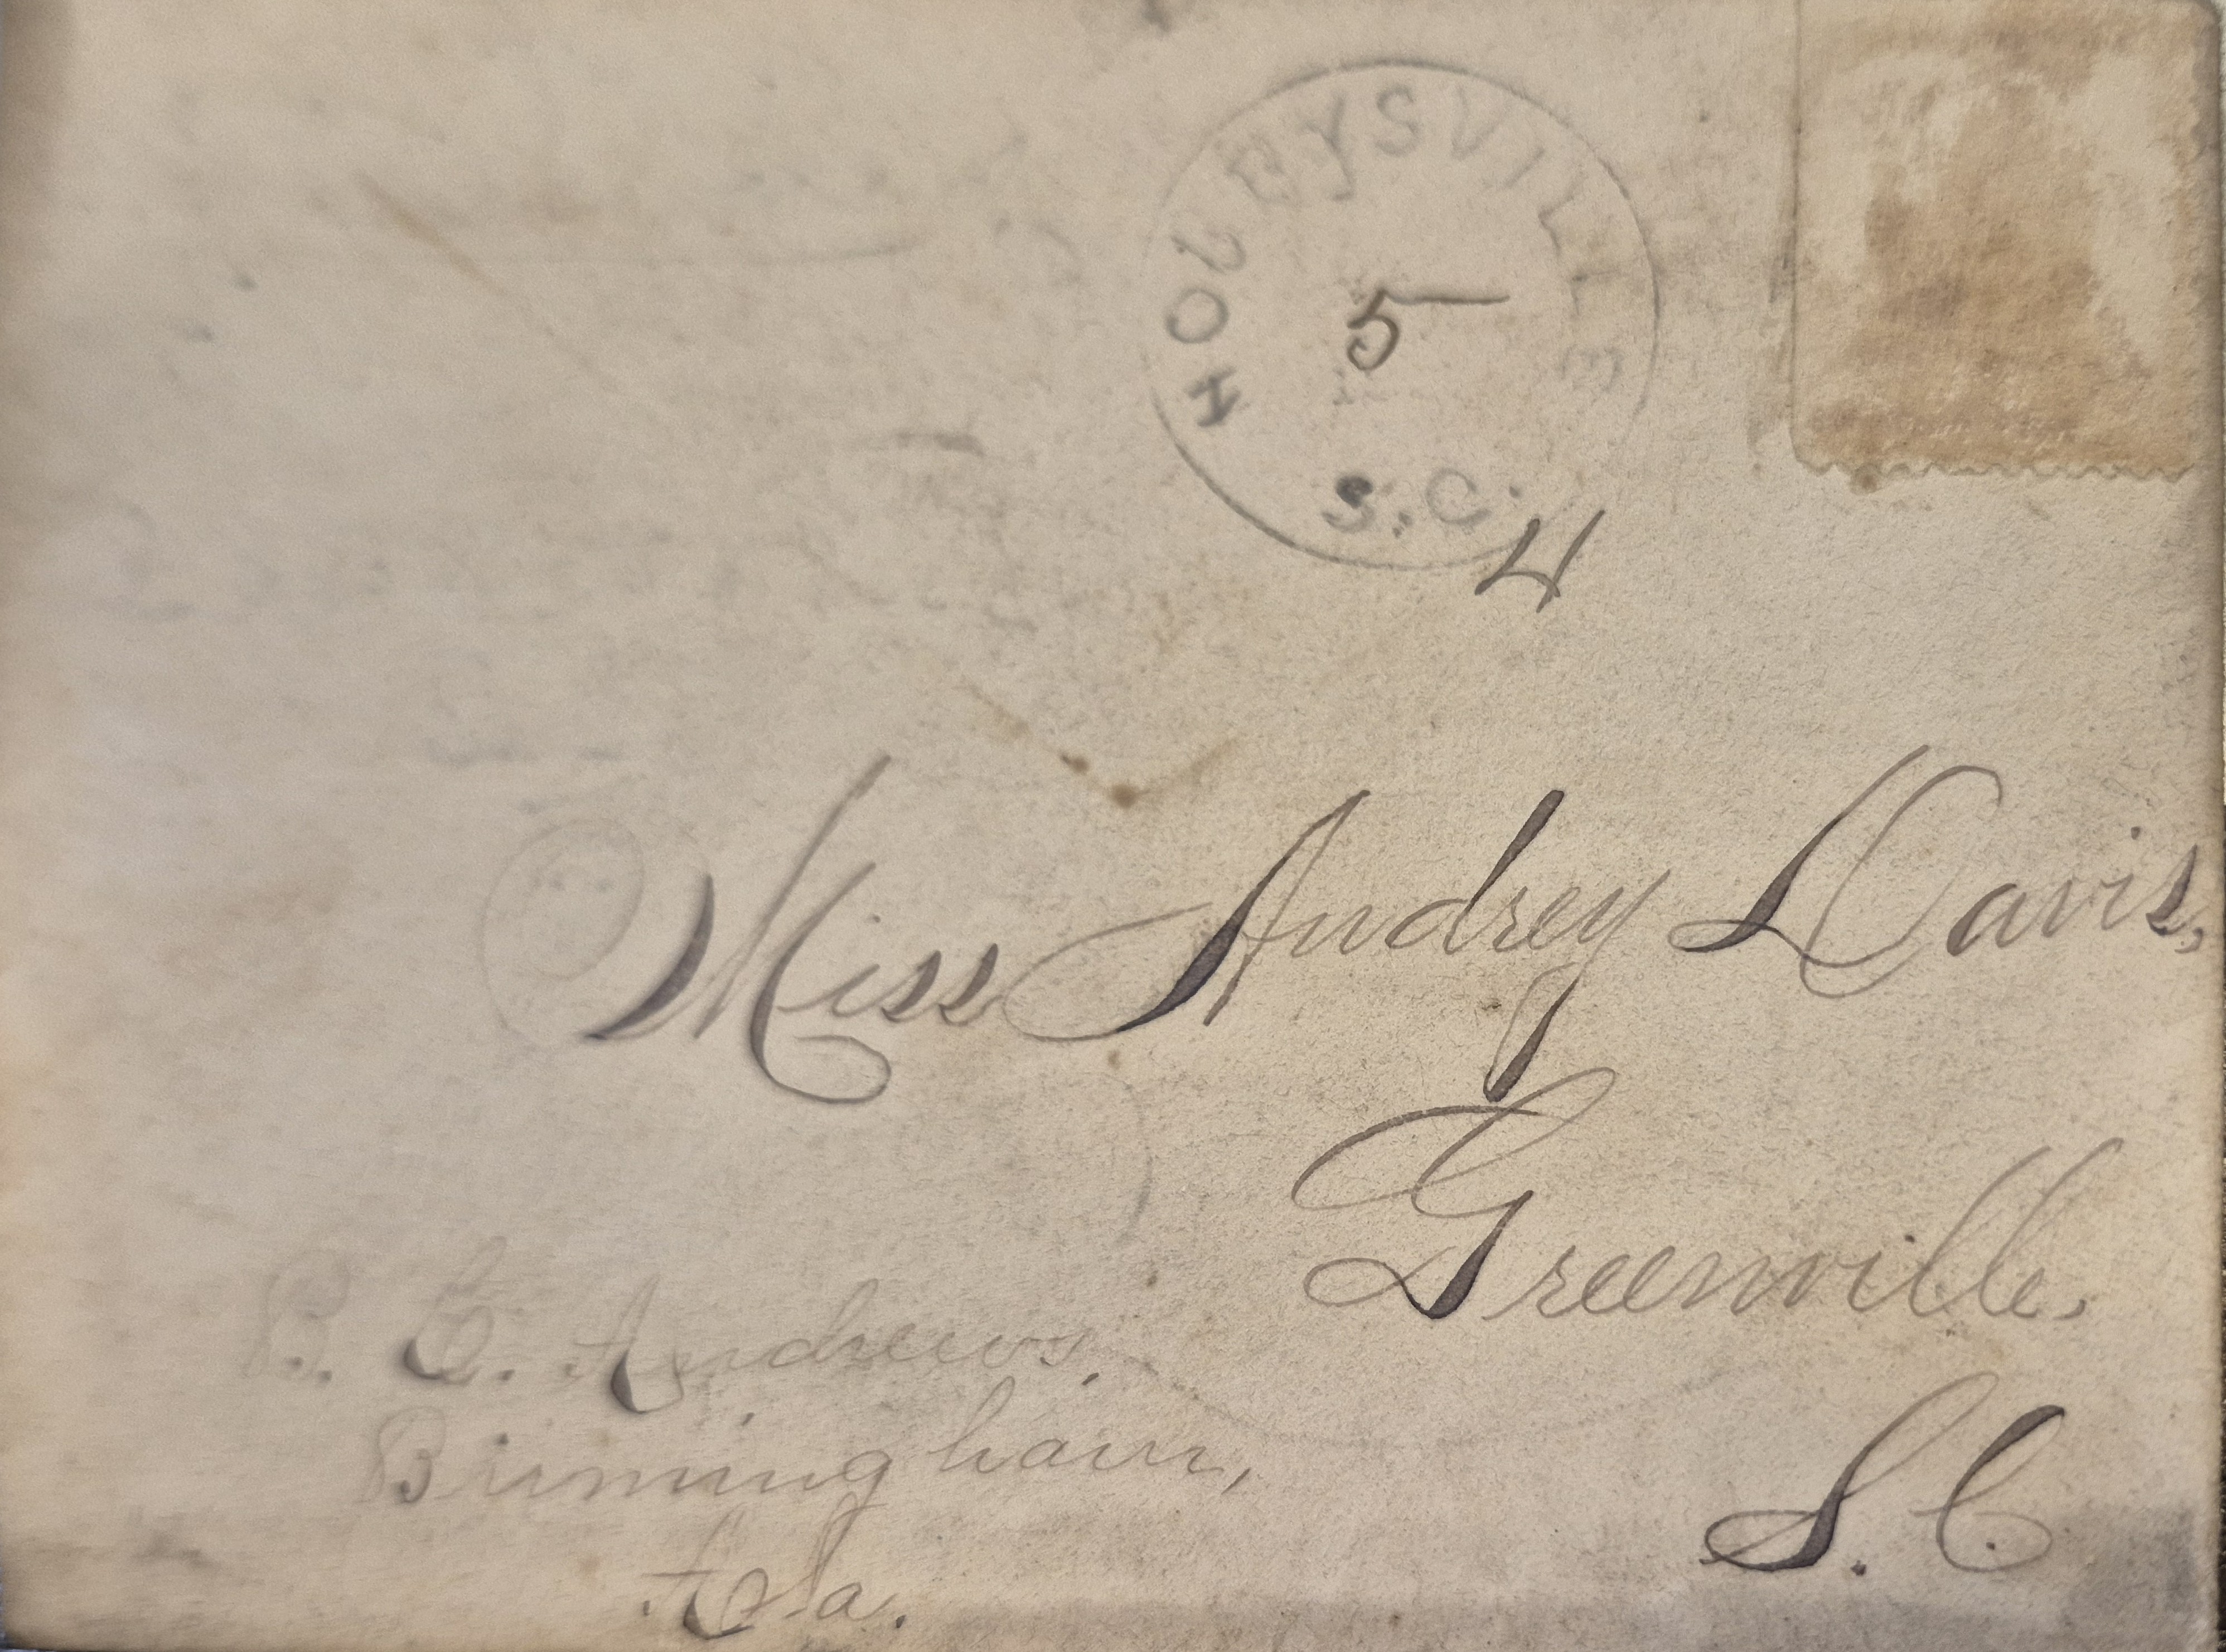 HOBBYSVILLE
5
S.C.
4
Miss Audrey Davis,
Greenville,
S.C.
B. C. Andrews,
Birmingham,
Ala.